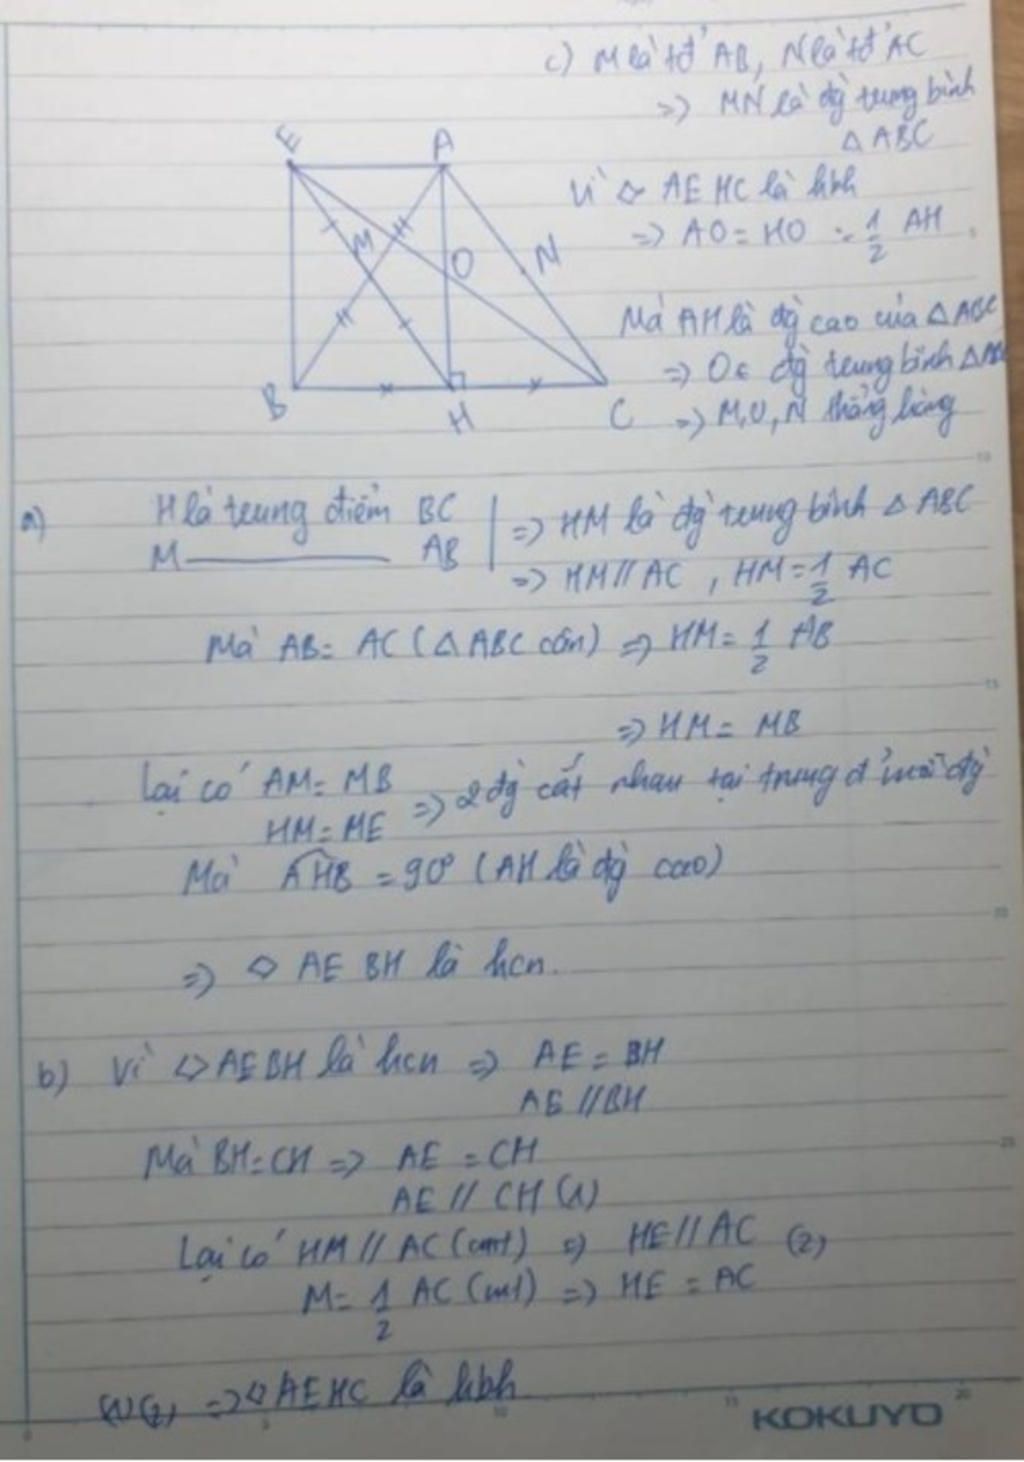 c) M là tđ' AB, N là tđ' AC
=> MN là đg̀ trung bình
△ ABC
Vì ◇ AEHC là hbh
=> AO = HO = 1/2 AH
Mà AH là đg̀ cao của △ ABC
=> O ∈ đg̀ trung bình △
=> M, O, N thẳng hàng
E A
M O N
B H C
a) H là trung điểm BC | => HM là đg̀ trung bình △ ABC
M ———— AB | => HM // AC , HM = 1/2 AC
Mà AB = AC (△ ABC cân) => HM = 1/2 AB
=> HM = MB
Lại có AM = MB
HM = ME => 2 đg̀ cắt nhau tại trung đ' mỗi đg̀
Mà AHB = 90° (AH là đg̀ cao)
=> ◇ AEBH là hcn.
b) Vì ◇ AEBH là hcn => AE = BH
AE // BH
Mà BH = CH => AE = CH
AE // CH (1)
Lại có HM // AC (cmt) => HE // AC (2)
M = 1/2 AC (cmt) => HE = AC
(1)(2) => ◇ AEHC là hbh
KOKUYO